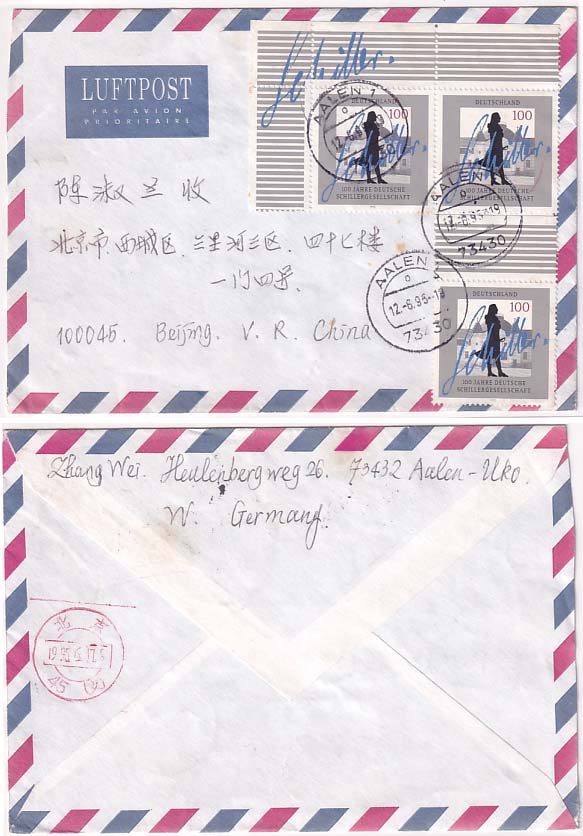 Schiller.
LUFTPOST
PAR AVION
PRIORITAIRE
AALEN 1
73430
DEUTSCHLAND
100
Schiller.
100 JAHRE DEUTSCHE
SCHILLERGESELLSCHAFT
DEUTSCHLAND
100
Schiller.
100 JAHRE DEUTSCHE
SCHILLERGESELLSCHAFT
AALEN
12.-6.95-19
73430
陈淑兰收
北京市.西城区.三里河三区.四十七楼
一门四号
100045. Beijing. V. R. China
AALEN
12.-6.95-19
73430
DEUTSCHLAND
100
Schiller.
100 JAHRE DEUTSCHE
SCHILLERGESELLSCHAFT
Zhang Wei. Heulenbergweg 26. 73432 Aalen-Uko.
W. Germany.
北京
45